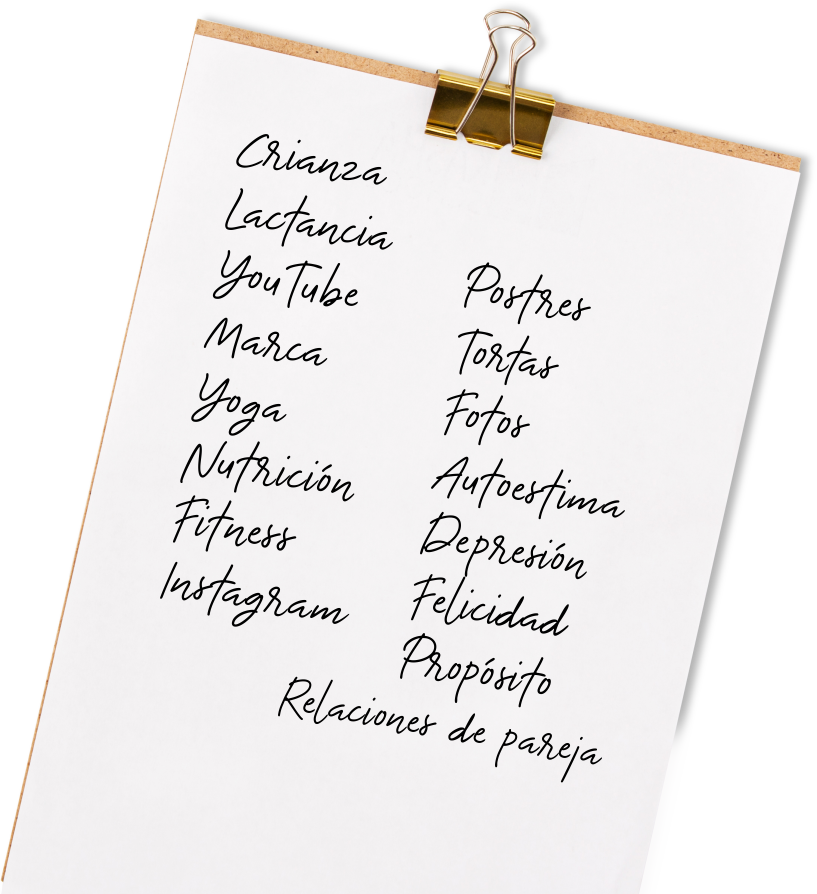 Crianza
Lactancia
YouTube
Marca
Yoga
Nutrición
Fitness
Instagram
Postres
Tortas
Fotos
Autoestima
Depresión
Felicidad
Propósito
Relaciones de pareja